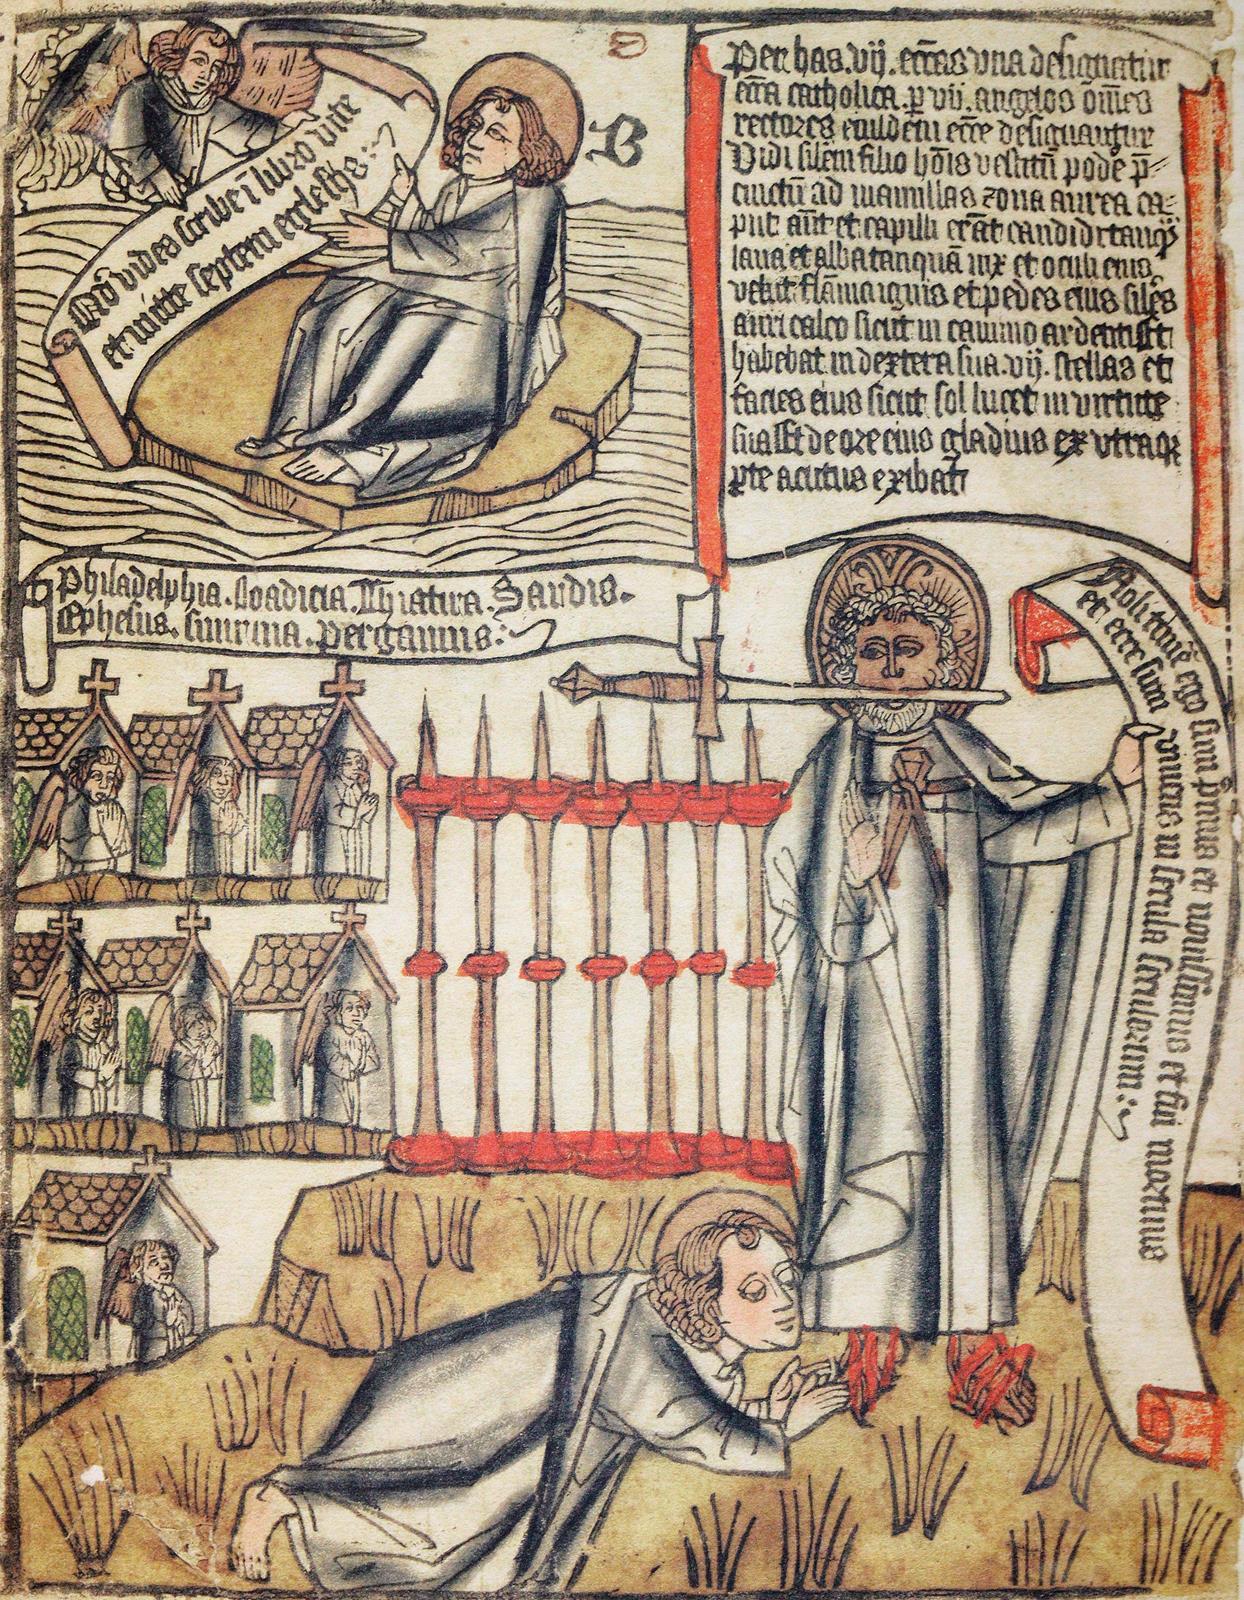 Qđ vides scribe ī libro vite
et mitte septem ecclesijs :~
B
Per has .vij. eccᵃs vna designatur
ecca catholica . p̲ vij . angelos ōmes
rectores eiusdem ecce designantur
Vidi silem filio hōis vestitū podē p̄
cinctū ad mamillas zona aurea ca-
put aūt et capilli erāt candidi tanq̄
lana et alba tanquā nix et oculi eius
velut flāma ignis et pedes eius siles
auri calco sicut in camino ardenti Et
habebat in dextera sua .vij. stellas et
facies eius sicut sol lucet in virtute
sua Et de ore eius gladius ex vtraqꝫ
pte acutus exibat
Philadelphia . Loadicia . Thiatira . Sardis .
Ephesus . smirma . Pergamus :~
Noli timē ego sum p̄mus et nouissimus et fui mortuus
et ecce sum viuens in secula seculorum :~